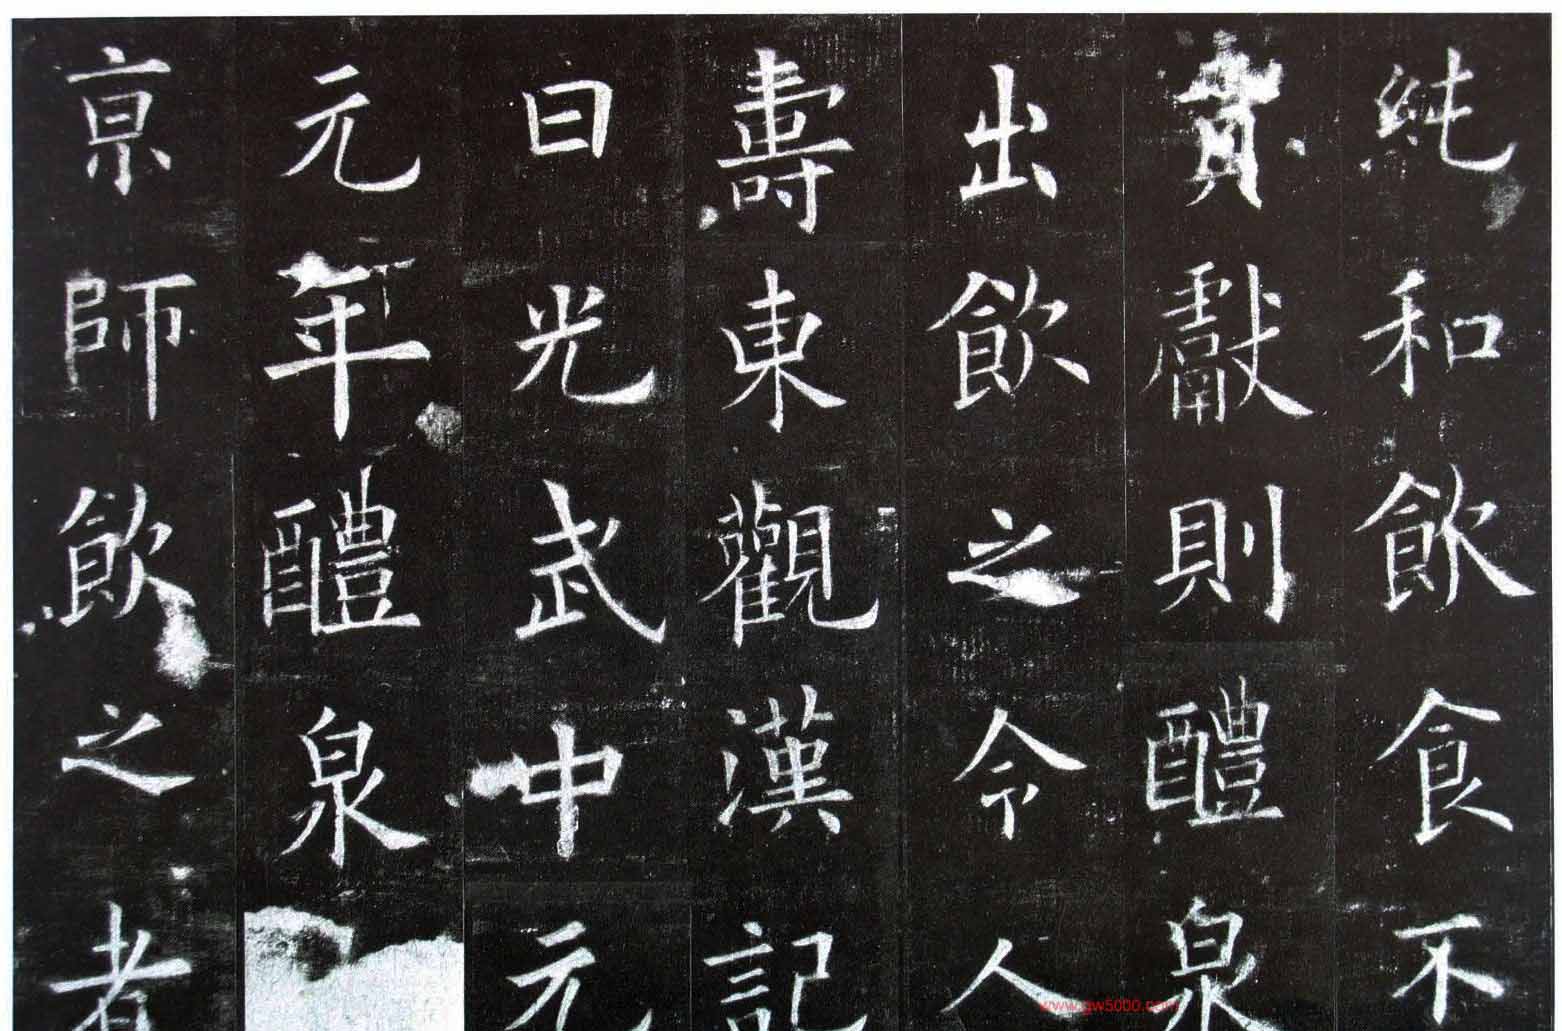 純和飲食不
貢獻則醴泉
出飲之令人
壽東觀漢記
曰光武中元
元年醴泉
京師飲之者
www.gw5000.com